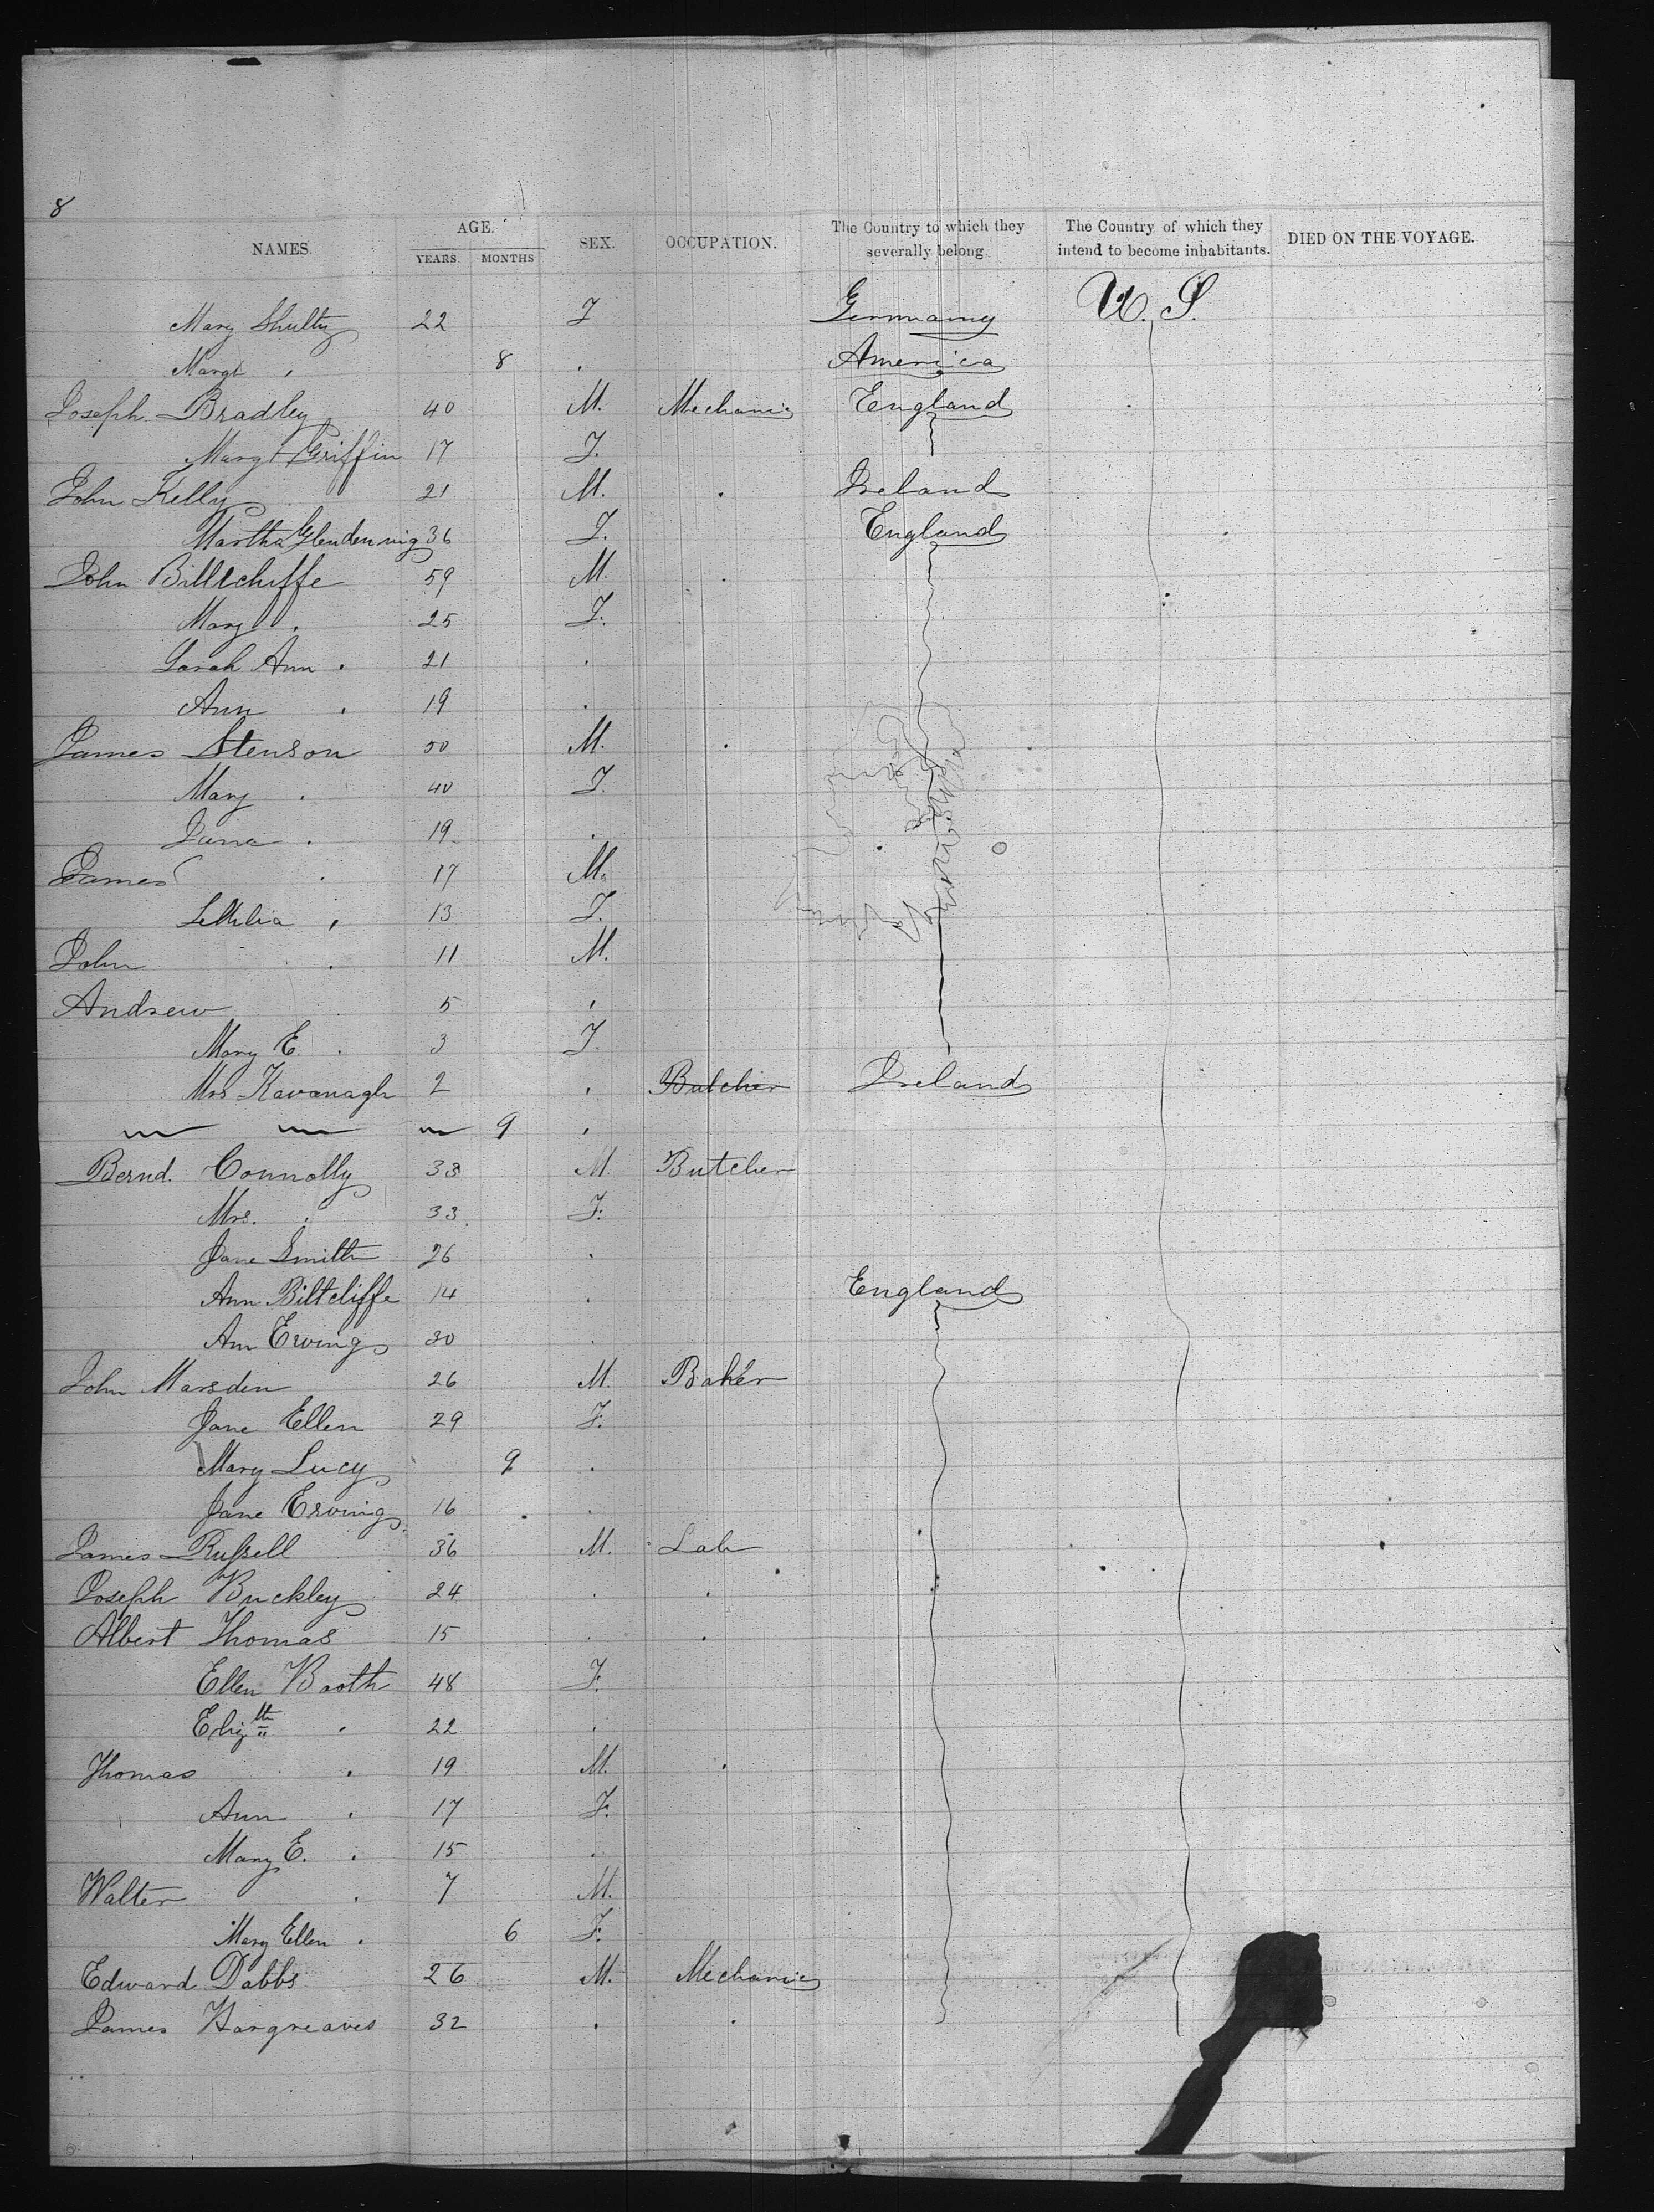 8
NAMES. AGE. YEARS. MONTHS SEX. OCCUPATION. The Country to which they severally belong The Country of which they intend to become inhabitants. DIED ON THE VOYAGE.
Mary Shultz 22 F Germany U. S.
Margt " 8 " America
Joseph Bradley 40 M. Mechanic England
Margt Griffin 17 F.
John Kelly 21 M. " Ireland
Martha Glendenning 36 F. England
John Biltcliffe 59 M. "
Mary " 25 F.
Sarah Ann " 21 "
Ann " 19 "
James Stenson 50 M. "
Mary " 40 F.
Jane " 19 "
James " 17 M.
" 13 F.
John " 11 M.
Andrew 5 "
Mary E. " 3 F.
Mrs Kavanagh 2 " Butcher Ireland
9 "
Bernd. Connolly 33 M. Butcher
Mrs. " 33 F.
Jane Smith 26 "
Ann Biltcliffe 14 " England
Ann Erving 30 "
John Marsden 26 M. Baker
Jane Ellen 29 F.
Mary Lucy 9 "
Jane Erving 16 "
James Russell 36 M. Lab
Joseph Buckley 24 " "
Albert Thomas 15 " "
Ellen Booth 48 F.
Elizth " 22 "
Thomas " 19 M. "
Ann " 17 F.
Mary E. " 15 "
Walter " 7 M.
Mary Ellen " 6 F.
Edward Dabbs 26 M. Mechanic
James Hargreaves 32 " "